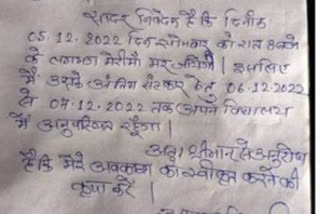 सादर निवेदन है कि दिनांक
05.12.2022 दिन सोमवार को रात 8 बजे
के लगभग मेरी माँ मर जायेगी। इसलिए
मैं उसके अंतिम संस्कार हेतु 06.12.2022
से 07.12.2022 तक अपने विद्यालय
में अनुपस्थित रहूँगा।
अतः श्रीमान् से अनुरोध
है कि मेरे अवकाश को स्वीकृत करने की
कृपा करें।